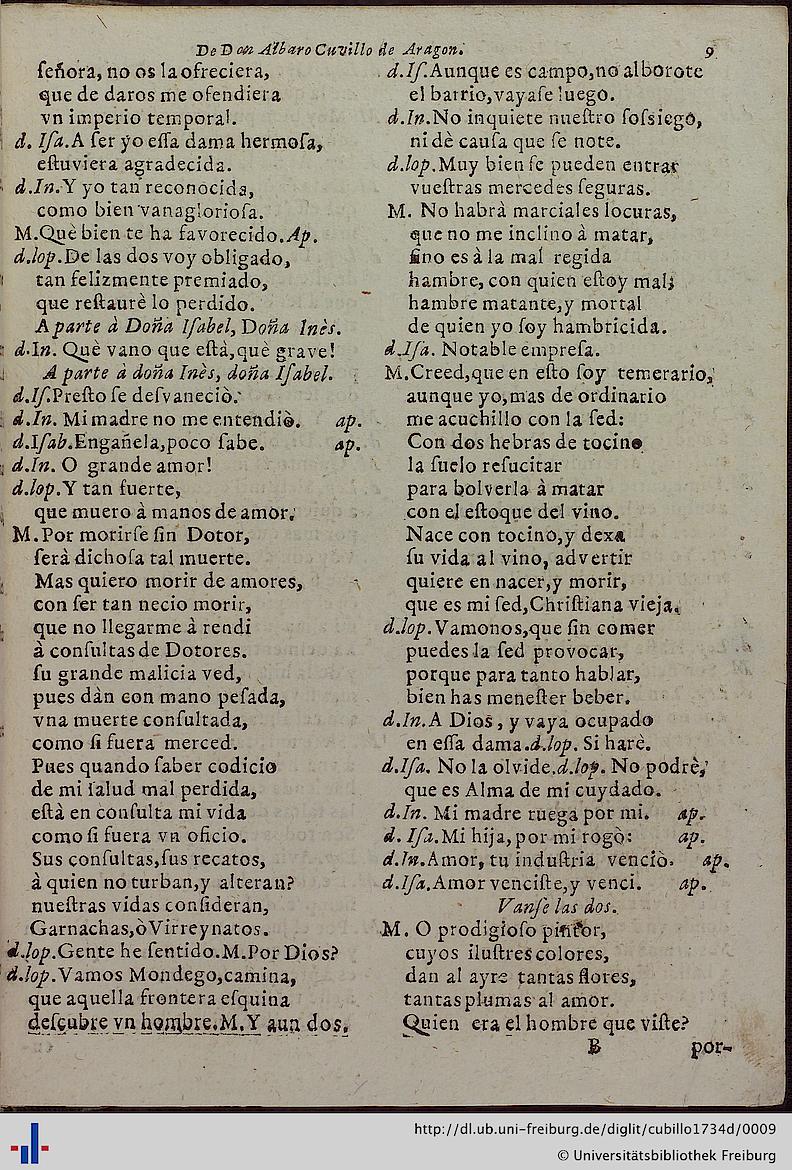 De Don Albaro Cuvillo de Aragon. 9
ſeñora, no os la ofreciera,
que de daros me ofendiera
vn imperio temporal.
d. Iſa. A ſer yo eſſa dama hermoſa,
eſtuviera agradecida.
d.In. Y yo tan reconocida,
como bien vanaglorioſa.
M. Què bien te ha favorecido. Ap.
d.lop. De las dos voy obligado,
tan felizmente premiado,
que reſtaurè lo perdido.
Aparte à Doña Iſabel, Doña Inès.
d.In. Què vano que eſtà, què grave!
A parte à doña Inès, doña Iſabel.
d.Iſ. Preſto ſe deſvaneciò.
d.In. Mi madre no me entendiò. ap.
d.Iſab. Engañela, poco ſabe. ap.
d.In. O grande amor!
d.lop. Y tan fuerte,
que muero à manos de amor.
M. Por morirſe ſin Dotor,
ſerà dichoſa tal muerte.
Mas quiero morir de amores,
con ſer tan necio morir,
que no llegarme à rendi
à conſultas de Dotores.
ſu grande malicia ved,
pues dàn con mano peſada,
vna muerte conſultada,
como ſi fuera merced.
Pues quando ſaber codicio
de mi ſalud mal perdida,
eſtà en conſulta mi vida
como ſi fuera vn oficio.
Sus conſultas, ſus recatos,
à quien no turban, y alteran?
nueſtras vidas conſideran,
Garnachas, ò Virreynatos.
d.lop. Gente he ſentido. M. Por Dios?
d.lop. Vamos Mondego, camina,
que aquella frontera eſquina
deſcubre vn hombre. M. Y aun dos.
d.Iſ. Aunque es campo, no alborote
el barrio, vayaſe luego.
d.In. No inquiete nueſtro ſoſsiego,
ni dè cauſa que ſe note.
d.lop. Muy bien ſe pueden entrar
vueſtras mercedes ſeguras.
M. No habrà marciales locuras,
que no me inclino à matar,
ſino es à la mal regida
hambre, con quien eſtoy mal;
hambre matante, y mortal
de quien yo ſoy hambricida.
d.Iſa. Notable empreſa.
M. Creed, que en eſto ſoy temerario,
aunque yo, mas de ordinario
me acuchillo con la ſed:
Con dos hebras de tocino
la ſuelo reſucitar
para bolverla à matar
con el eſtoque del vino.
Nace con tocino, y dexa
ſu vida al vino, advertir
quiere en nacer, y morir,
que es mi ſed, Chriſtiana vieja.
d.lop. Vamonos, que ſin comer
puedes la ſed provocar,
porque para tanto hablar,
bien has meneſter beber.
d.In. A Dios, y vaya ocupado
en eſſa dama. d.lop. Si harè.
d.Iſa. No la olvide. d.lop. No podrè,
que es Alma de mi cuydado.
d.In. Mi madre ruega por mi. ap.
d. Iſa. Mi hija, por mi rogò: ap.
d.In. Amor, tu induſtria venciò. ap.
d.Iſa. Amor venciſte, y venci. ap.
Vanſe las dos.
M. O prodigioſo pintor,
cuyos iluſtres colores,
dan al ayre tantas flores,
tantas plumas al amor.
Quien era el hombre que viſte?
B por-
http://dl.ub.uni-freiburg.de/diglit/cubillo1734d/0009
© Universitätsbibliothek Freiburg